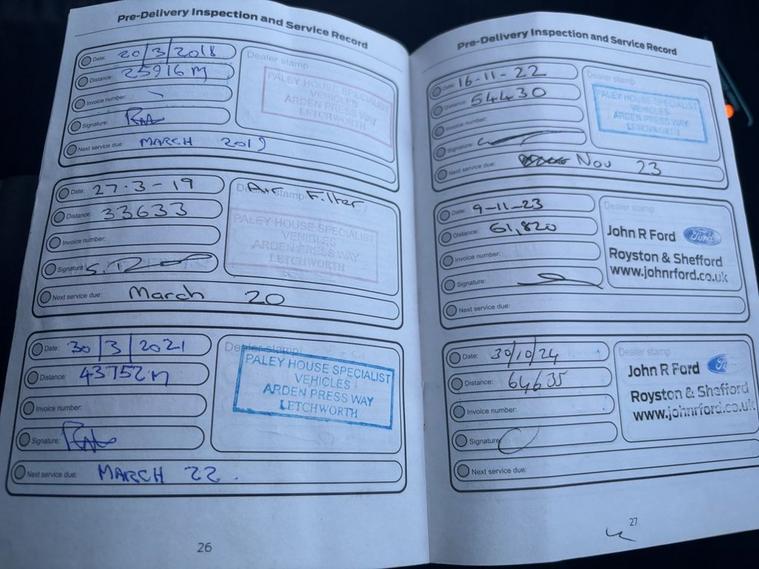 Pre-Delivery Inspection and Service Record
Date: 20/3/2018
Distance: 25916 M
Invoice number:
Signature:
Next service due: MARCH 2019
Dealer stamp
PALEY HOUSE SPECIALIST
VEHICLES
ARDEN PRESS WAY
LETCHWORTH
Date: 27-3-19
Distance: 33633
Invoice number:
Signature:
Next service due: March 20
Dealer stamp
Air Filter
PALEY HOUSE SPECIALIST
VEHICLES
ARDEN PRESS WAY
LETCHWORTH
Date: 30/3/2021
Distance: 43752 M
Invoice number:
Signature:
Next service due: MARCH 22.
Dealer stamp
PALEY HOUSE SPECIALIST
VEHICLES
ARDEN PRESS WAY
LETCHWORTH
26
Pre-Delivery Inspection and Service Record
Date: 16-11-22
Distance: 54430
Invoice number:
Signature:
Next service due: Nov 23
Dealer stamp
PALEY HOUSE SPECIALIST
VEHICLES
ARDEN PRESS WAY
LETCHWORTH
Date: 9-11-23
Distance: 61,820
Invoice number:
Signature:
Next service due:
Dealer stamp
John R Ford Ford
Royston & Shefford
www.johnrford.co.uk
Date: 30/10/24
Distance:
Invoice number:
Signature:
Next service due:
Dealer stamp
John R Ford
Royston & Shefford
www.johnrford.co.uk
27